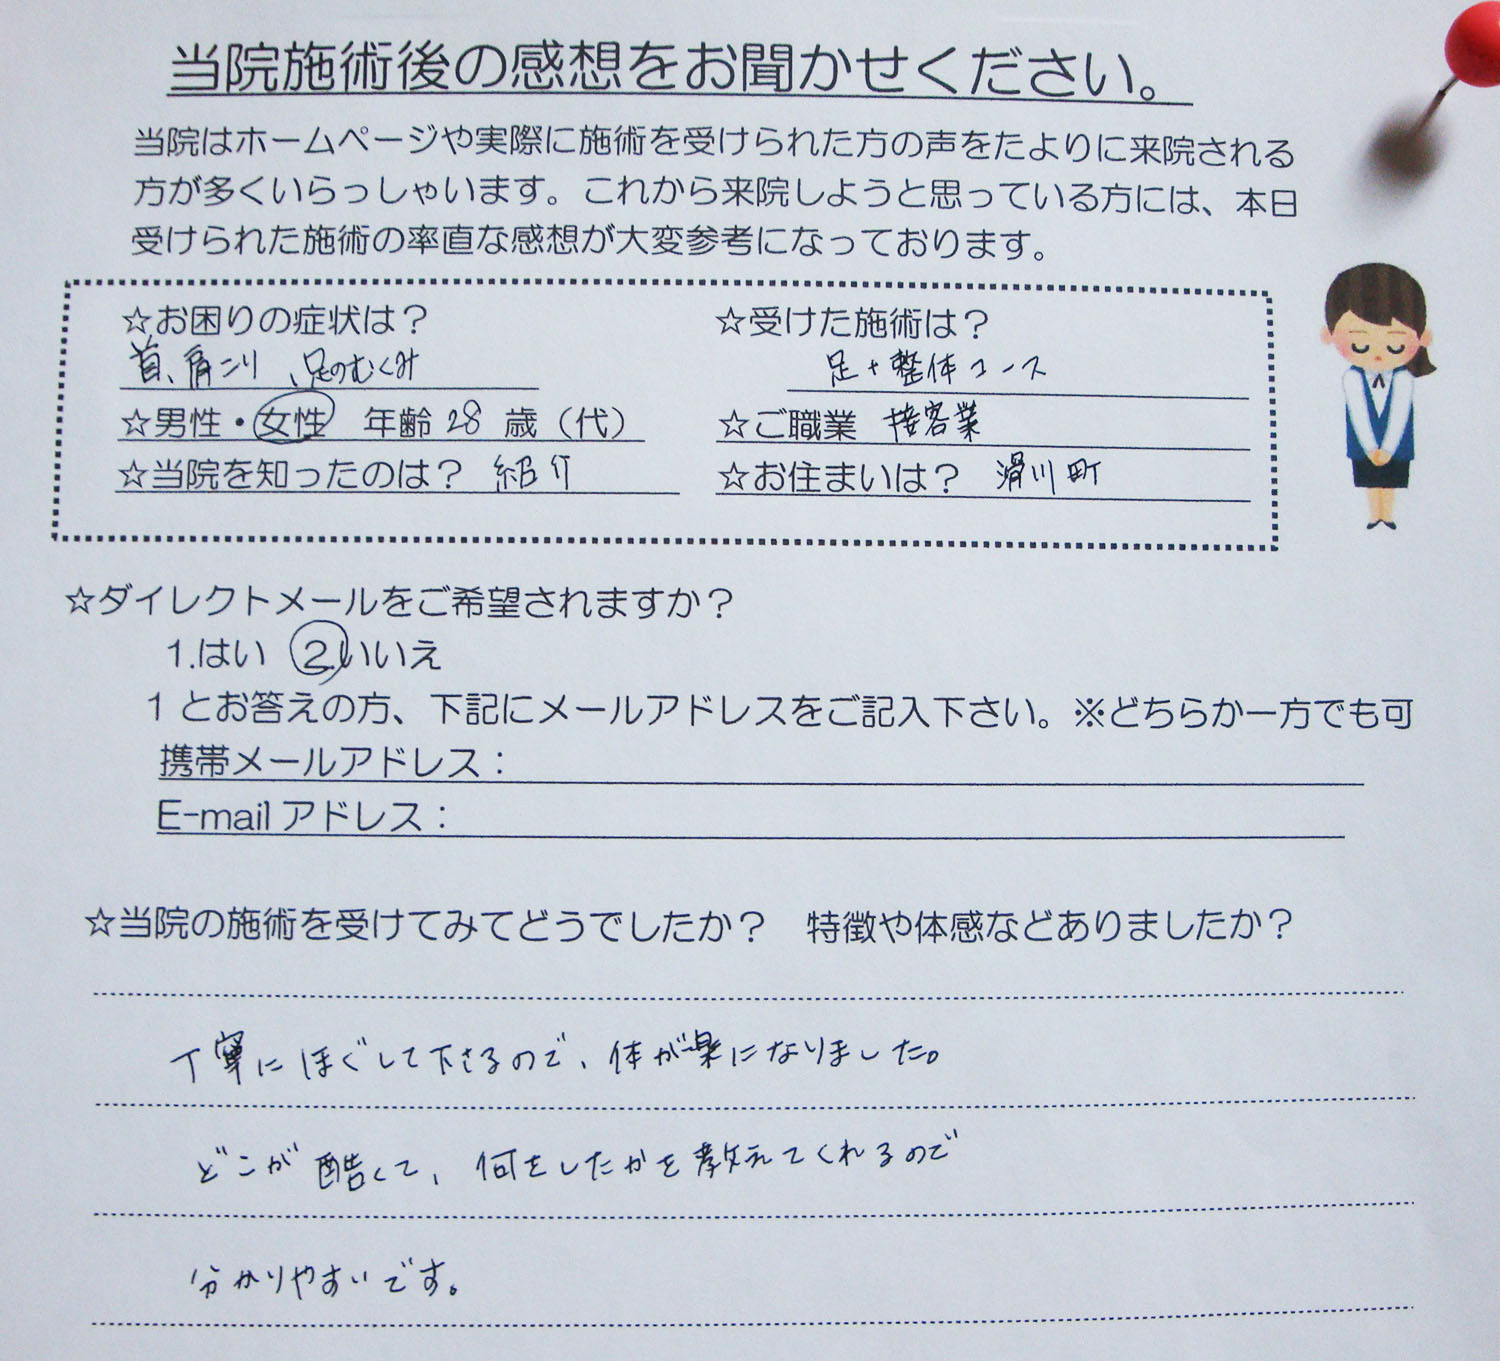 当院施術後の感想をお聞かせください。
当院はホームページや実際に施術を受けられた方の声をたよりに来院される
方が多くいらっしゃいます。これから来院しようと思っている方には、本日
受けられた施術の率直な感想が大変参考になっております。
☆お困りの症状は？ ☆受けた施術は？
首、肩こり、足のむくみ 足+整体コース
☆男性・女性 年齢 28 歳（代） ☆ご職業 接客業
☆当院を知ったのは？ 紹介 ☆お住まいは？ 滑川町
☆ダイレクトメールをご希望されますか？
1.はい 2.いいえ
1 とお答えの方、下記にメールアドレスをご記入下さい。※どちらか一方でも可
携帯メールアドレス：
E-mail アドレス：
☆当院の施術を受けてみてどうでしたか？ 特徴や体感などありましたか？
丁寧にほぐして下さるので、体が楽になりました。
どこが酷くて、何をしたかを教えてくれるので
分かりやすいです。